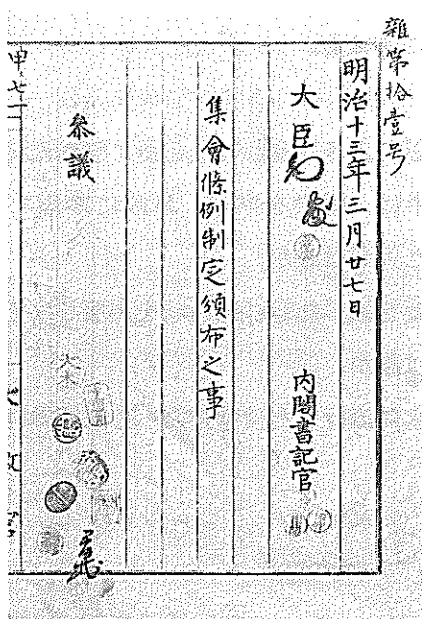 雜第拾壹号
明治十三年三月廿七日
大臣
内閣書記官
集會條例制定頒布之事
參議
大木
甲七十一